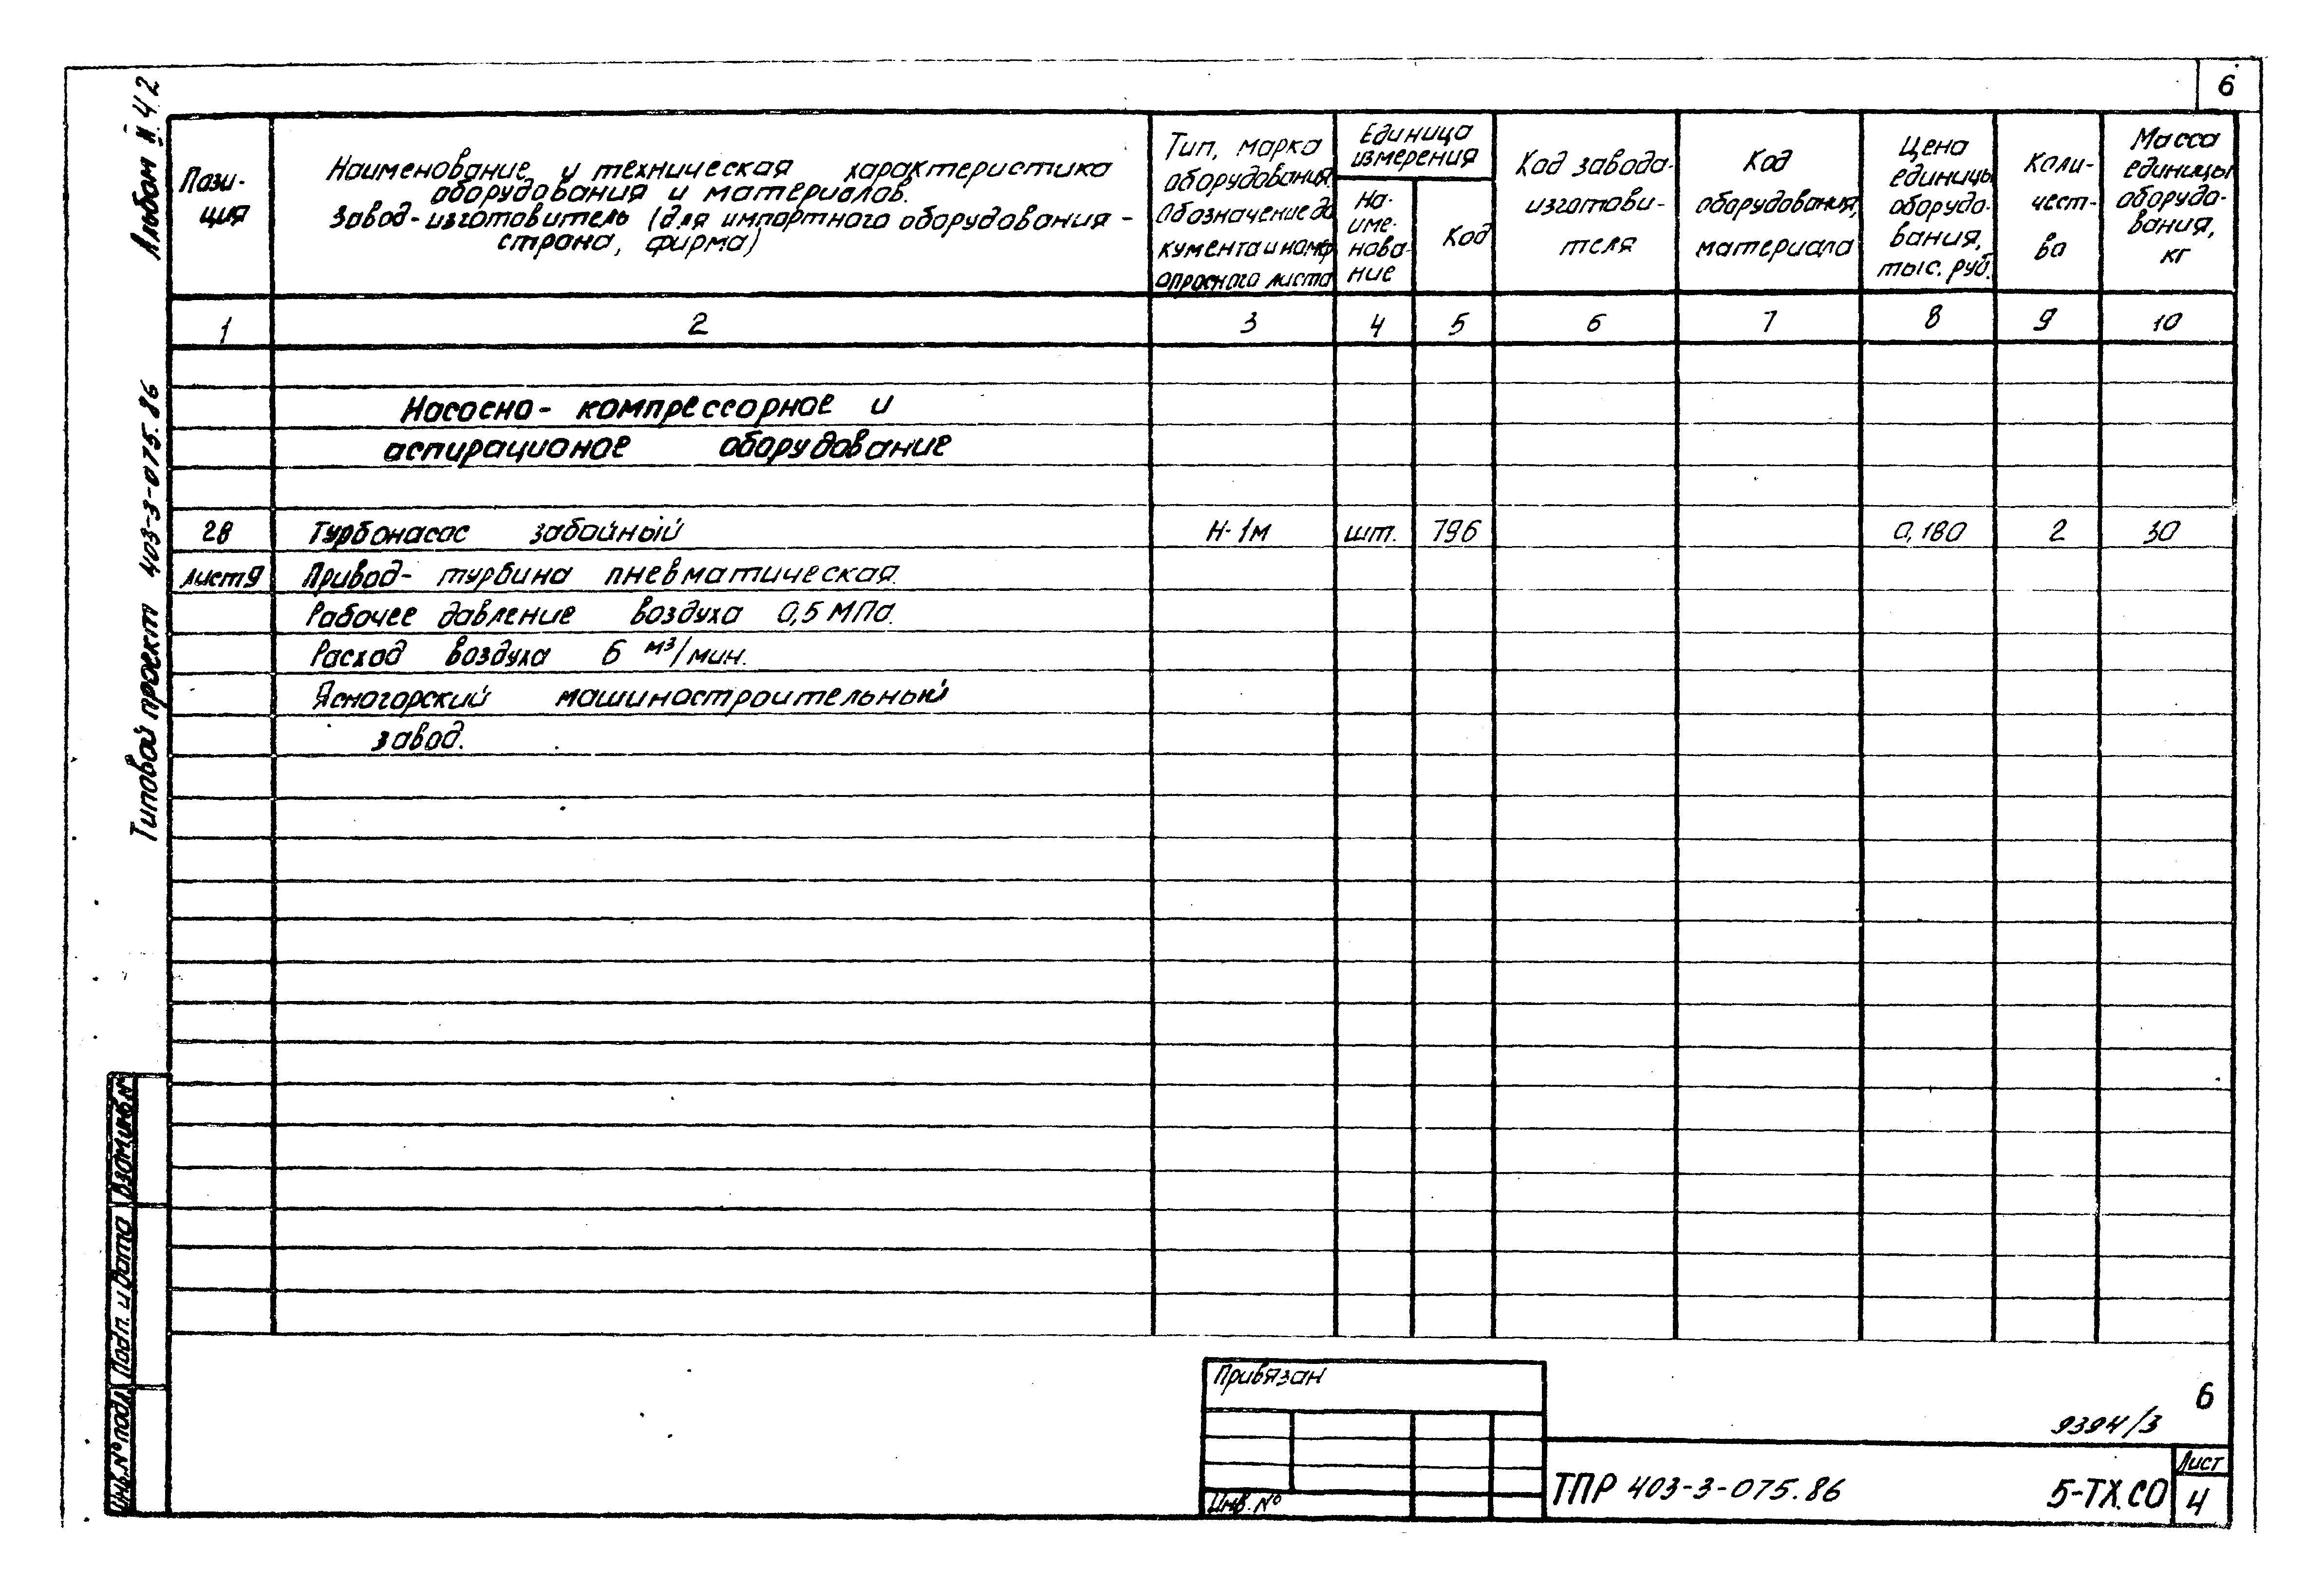 6
Альбом II.4.2
Типовой проект 403-3-075.86
Пози-
ция
Наименование и техническая характеристика
оборудования и материалов.
Завод-изготовитель (для импортного оборудования -
страна, фирма)
Тип, марка
оборудования.
Обозначение до
кумента и номер
опросного листа
Единица
измерения
На-
име-
нова-
ние
Код
Код завода-
изготови-
теля
Код
оборудования,
материала
Цена
единицы
оборудо-
вания,
тыс. руб.
Коли-
чест-
ва
Масса
единицы
оборудо-
вания,
кг
1 2 3 4 5 6 7 8 9 10
Насосно- компрессорное и
аспирационое оборудование
28 Турбонасос забойный Н-1м шт. 796 0,180 2 30
лист 9 Привод- турбина пневматическая.
Рабочее давление воздуха 0,5 МПа.
Расход воздуха 6 м³/мин.
Ясногорский машиностроительный
завод.
Взам.инв.№
Подп. и дата
Инв.№ подл.
Привязан
Инв. №
6
9394/3
ТПР 403-3-075.86
5-ТХ.СО
Лист
4